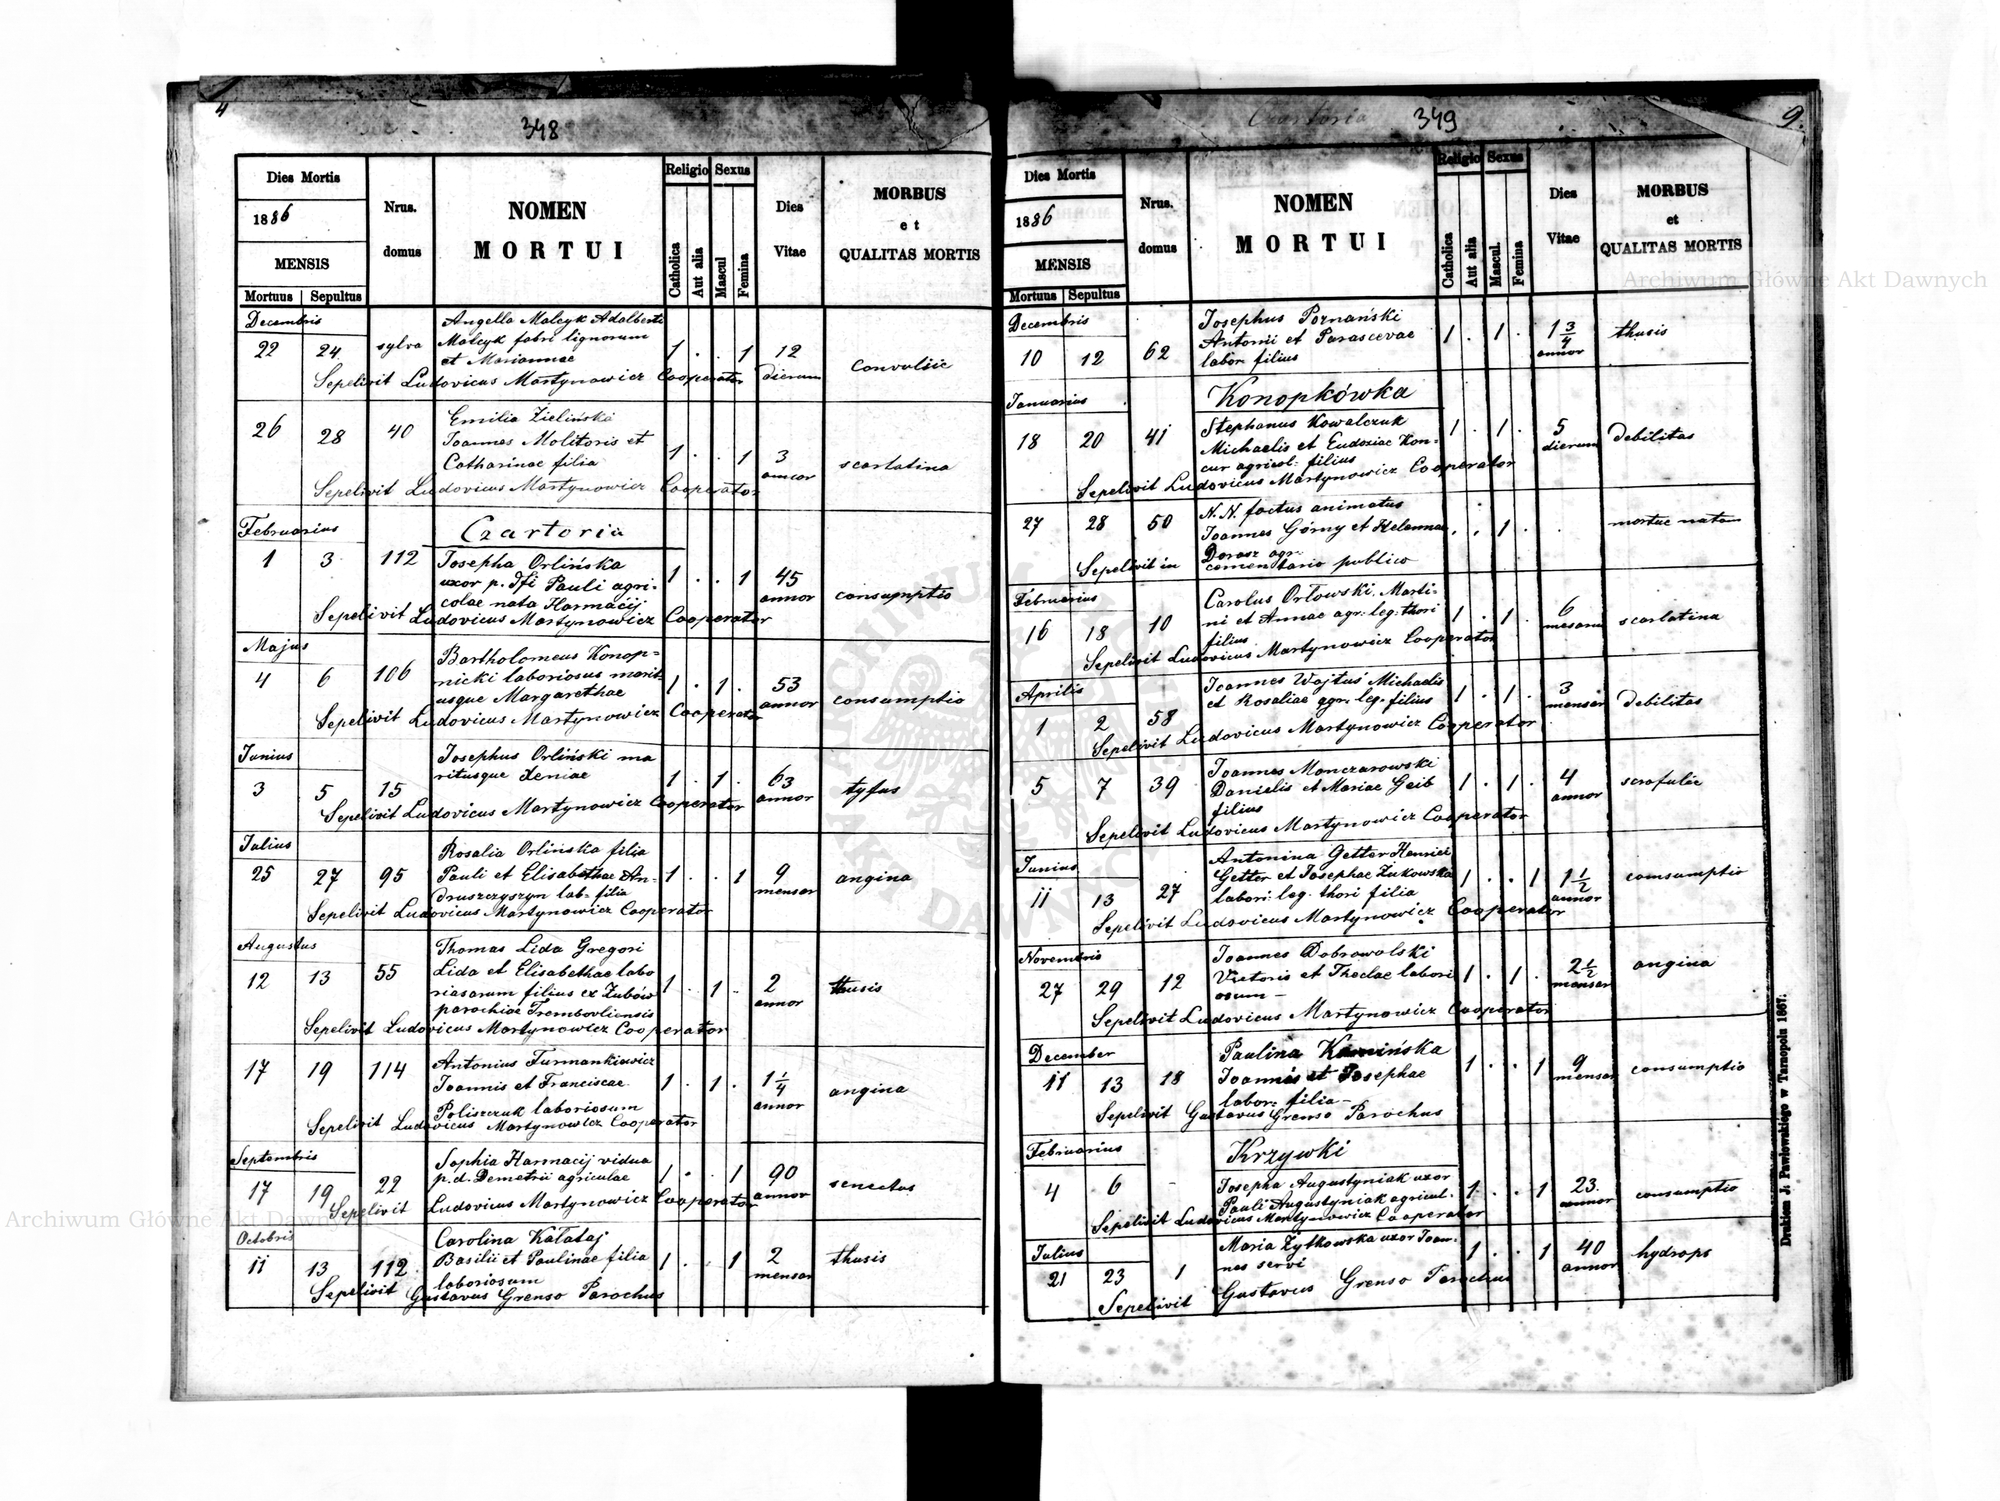 4
348
Dies Mortis
1886
MENSIS
Mortuus Sepultus
Nrus. domus
NOMEN MORTUI
Religio
Catholica
Aut alia
Sexus
Mascul
Femina
Dies Vitae
MORBUS et QUALITAS MORTIS
Decembris
22 24 sylva Angella Malcyk Adalberti
Malcyk fabri lignorum
et Mariannae 1 . . 1 12 dierum
Sepelivit Ludovicus Martynowicz Cooperator
26 28 40 Emilia Zielińska
Joannes Molitoris et
Catharinae filia 1 . . 1 3 annor scarlatina
Sepelivit Ludovicus Martynowicz Cooperator
Februarius
Czartoria
1 3 112 Josepha Orlińska
uxor p. dfi Pauli agri-
colae nata Harmacij 1 . . 1 45 annor consumptio
Sepelivit Ludovicus Martynowicz Cooperator
Majus
4 6 106 Bartholomeus Konop=
nicki laboriosus marit
usque Margarethae 1 . 1 . 53 annor consumptio
Sepelivit Ludovicus Martynowicz Cooperator
Junius
3 5 15 Josephus Orliński ma
ritusque Xeniae 1 . 1 . 63 annor tyfus
Sepelivit Ludovicus Martynowicz Cooperator
Julius
25 27 95 Rosalia Orlińska filia
Pauli et Elisabethae An-
druszczyszyn lab. filia 1 . . 1 9 mensar angina
Sepelivit Ludovicus Martynowicz Cooperator
Augustus
12 13 55 Thomas Lida Gregori
Lida et Elisabethae labo
riasarum filius ex Zubów
parochiae Trembovliensis 1 . 1 . 2 annor thusis
Sepelivit Ludovicus Martynowicz Cooperator
17 19 114 Antonius Furmankiewicz
Joannis et Franciscae
Poliszczuk laboriosum 1 . 1 . 1 1/4 annor angina
Sepelivit Ludovicus Martynowicz Cooperator
Septembris
17 19 22 Sophia Harmacij vidua
p.d. Demetrii agricolae 1 . . 1 90 annor senectus
Sepelivit Ludovicus Martynowicz Cooperator
Octobris
11 13 112 Carolina Kałataj
Basilii et Paulinae filia
laboriosum 1 . . 1 2 mensar thusis
Sepelivit Gustavus Grenso Parochus
Czartoria
349
9.
Dies Mortis
1886
MENSIS
Mortuus Sepultus
Nrus. domus
NOMEN MORTUI
Religio
Catholica
Aut alia
Sexus
Mascul.
Femina
Dies Vitae
MORBUS et QUALITAS MORTIS
Decembris
10 12 62 Josephus Poznański
Antonii et Parascevae
labor. filius 1 . 1 . 1 3/4 annor thusis
Januarius
Konopkówka
18 20 41 Stephanus Kowalczuk
Michaelis et Eudoxiae Kon=
cur agricol: filius 1 . 1 . 5 dierum debilitas
Sepelivit Ludovicus Martynowicz Cooperator
27 28 50 N.N. foetus animatus
Joannes Górny et Helennae
Dorasz agr. . . 1 . .
Sepelivit in cementario publico
Februarius
16 18 10 Carolus Orłowski. Marti-
ni et Annae agr: leg: thori
filius 1 . 1 . 6 scarlatina
Sepelivit Ludovicus Martynowicz Cooperator
Aprilis
1 2 58 Joannes Wojtuś Michaelis
et Rosaliae agr. leg. filius 1 . 1 . 3 mensar debilitas
Sepelivit Ludovicus Martynowicz Cooperator
5 7 39 Joannes Monczarowski
Danielis et Mariae Geib
filius 1 . 1 . 4 annor scrofulie
Sepelivit Ludovicus Martynowicz Cooperator
Junius
11 13 27 Antonina Getter Henrici
Getter et Josephae Żukowska
labori: leg. thori filia 1 . . 1 1 1/2 annor consumptio
Sepelivit Ludovicus Martynowicz Cooperator
Novembris
27 29 12 Joannes Dobrowolski
Victoris et Theclae labori
osum - 1 . 1 . 2 1/2 mensar angina
Sepelivit Ludovicus Martynowicz Cooperator
December
11 13 18 Paulina Kamińska
Joannis et Josephae
labor: filia - 1 . . 1 9 mensar consumptio
Sepelivit Gustavus Grenso Parochus
Februarius
Krzywki
4 6 - Josepha Augustyniak uxor
Pauli Augustyniak agricul. 1 . . 1 23 annor consumptio
Sepelivit Ludovicus Martynowicz Cooperator
Julius
21 23 1 Maria Żytkowska uxor Joan-
nes servi 1 . . 1 40 annor hydrops
Sepelivit Gustavus Grenso Parochus
Drukiem J. Pawłowskiego w Tarnopolu 1867.
Archiwum Główne Akt Dawnych
Archiwum Główne Akt Dawnych
ARCHIWUM GŁÓWNE AKT DAWNYCH